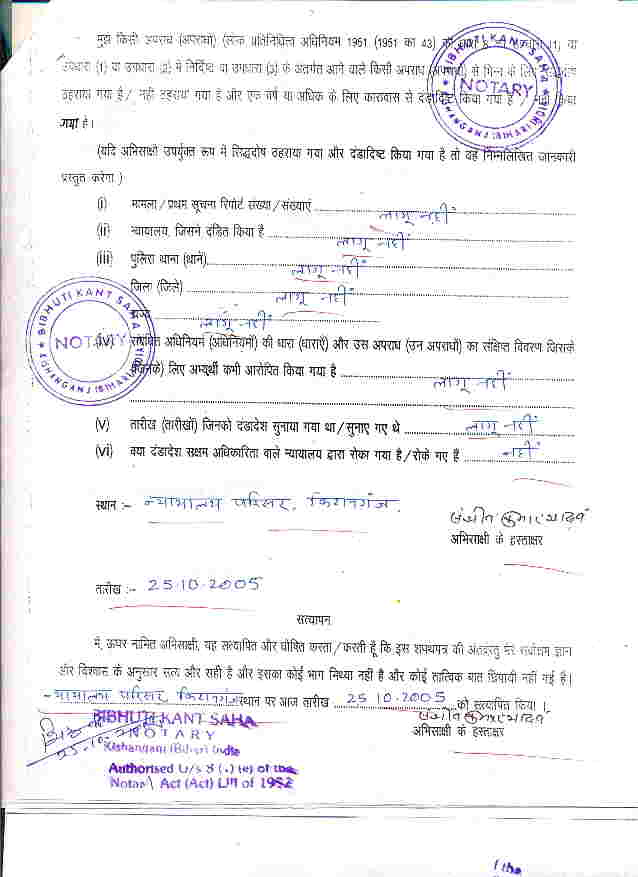 मुझे किसी अपराध (अपराधों) (लोक प्रतिनिधित्व अधिनियम 1951 (1951 का 43) की धारा 8 वा
उपधारा (1) या उपधारा (2) में निर्दिष्ट या उपधारा (3) के अंतर्गत आने वाले किसी अपराध (अपराधों) से भिन्न के लिए
ठहराया गया है / नहीं ठहराया गया है और एक वर्ष या अधिक के लिए कारावास से दंडादिष्ट किया गया है / नहीं किया
गया है ।
(यदि अभिसाक्षी उपर्युक्त रूप में सिद्धदोष ठहराया गया और दंडादिष्ट किया गया है तो वह निम्नलिखित जानकारी
प्रस्तुत करेगा )
(i) मामला / प्रथम सूचना रिपोर्ट संख्या / संख्याएं लागू नहीं
(ii) न्यायालय, जिसने दंडित किया है लागू नहीं
(iii) पुलिस थाना (थाने) लागू नहीं
जिला (जिले) लागू नहीं
राज्य लागू नहीं
(iv) संबंधित अधिनियम (अधिनियमों) की धारा (धाराएँ) और उस अपराध (उन अपराधों) का संक्षिप्त विवरण जिसके
(जिनके) लिए अभ्यर्थी कभी आरोपित किया गया है लागू नहीं
(V) तारीख (तारीखों) जिनको दंडादेश सुनाया गया था / सुनाए गए थे लागू नहीं
(Vi) क्या दंडादेश सक्षम अधिकारिता वाले न्यायालय द्वारा रोका गया है / रोके गए हैं नहीं
स्थान :- न्यायालय परिसर, किशनगंज
अभिसाक्षी के हस्ताक्षर
तारीख :- 25.10.2005
सत्यापन
मैं, ऊपर नामित अभिसाक्षी, यह सत्यापित और घोषित करता / करती हूँ कि इस शपथपत्र की अंतर्वस्तु मेरे सर्वोत्तम ज्ञान
और विश्वास के अनुसार सत्य और सही है और इसका कोई भाग मिथ्या नहीं है और कोई तात्विक बात छिपायी नहीं गई है ।
न्यायालय परिसर किशनगंज स्थान पर आज तारीख 25.10.2005 को सत्यापित किया ।
अभिसाक्षी के हस्ताक्षर
BIBHUTI KANT SAHA
NOTARY
Kishanganj (Bihar) India
Authorised U/s of the
Notary Act (Act) LIII of 1952
BIBHUTI KANT SAHA
NOTARY
KISHANGANJ (BIHAR) INDIA
BIBHUTI KANT SAHA
NOTARY
KISHANGANJ (BIHAR) INDIA
the